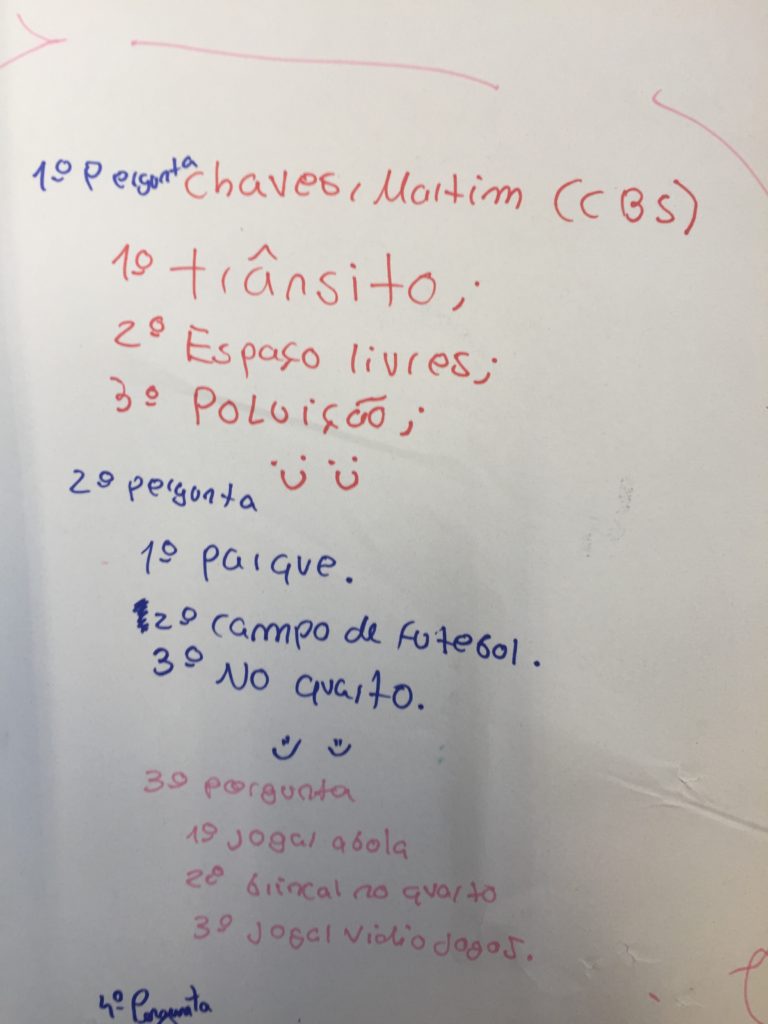 1º Pergunta Chaves, Martim (CBS)
1º trânsito;
2º Espaço livres;
3º Poluição;
2º pergunta
1º parque.
2º campo de futebol.
3º No quarto.
3º pergunta
1º jogar a bola
2º brincar no quarto
3º jogar vidio jogos.
4º Pergunta